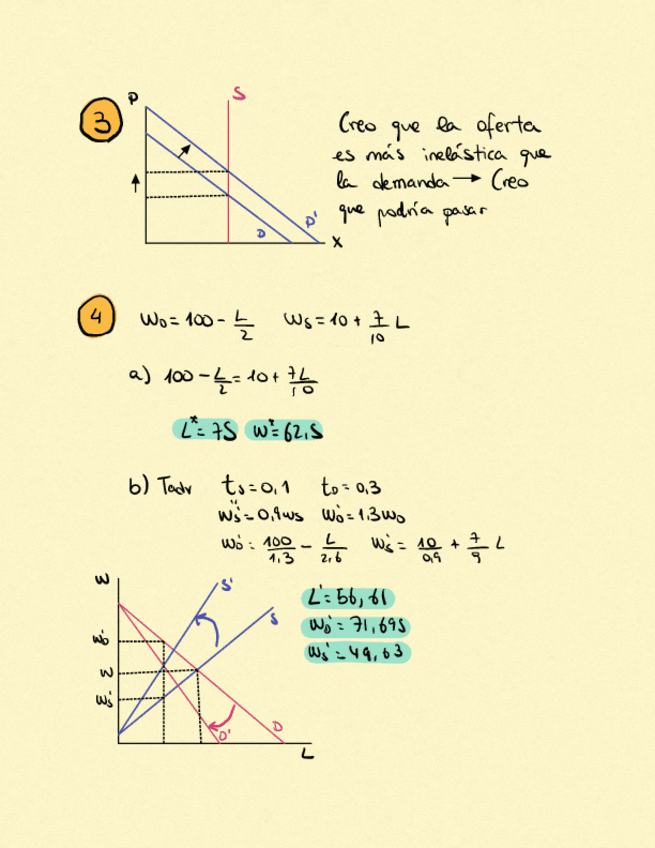 3
P
S
D
D'
X
Creo que la oferta
es más inelástica que
la demanda → Creo
que podría pasar
4
W_D = 100 - L/2    W_S = 10 + 7/10 L
a) 100 - L/2 = 10 + 7L/10
L* = 75    W* = 62,5
b) Tadv    t_S = 0,1    t_D = 0,3
W_S'' = 0,9 W_S    W_D' = 1,3 W_D
W_D' = 100/1,3 - L/2,6    W_S' = 10/0,9 + 7/9 L
W
S'
S
W_D'
W
W_S'
D'
D
L
L' = 56,61
W_D' = 71,695
W_S' = 49,63